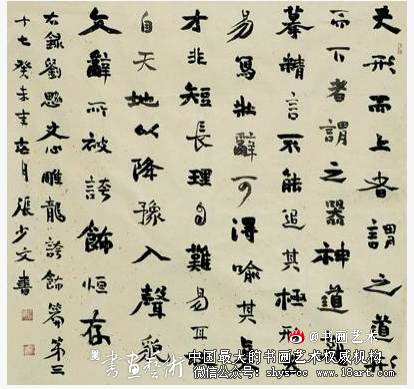 夫形而上者謂之道
而下者謂之器神道難
摹精言不能追其極形
易寫壯辭可得喻其真
才非短長理自難易耳
自天地以降豫入聲貌
文辭所被誇飾恒存
右錄劉勰文心雕龍誇飾篇第三
十七癸未月張少文書
@书画艺术
書畫藝術
中国最大的书画艺术权威机构
微信公众号: www.18art.com